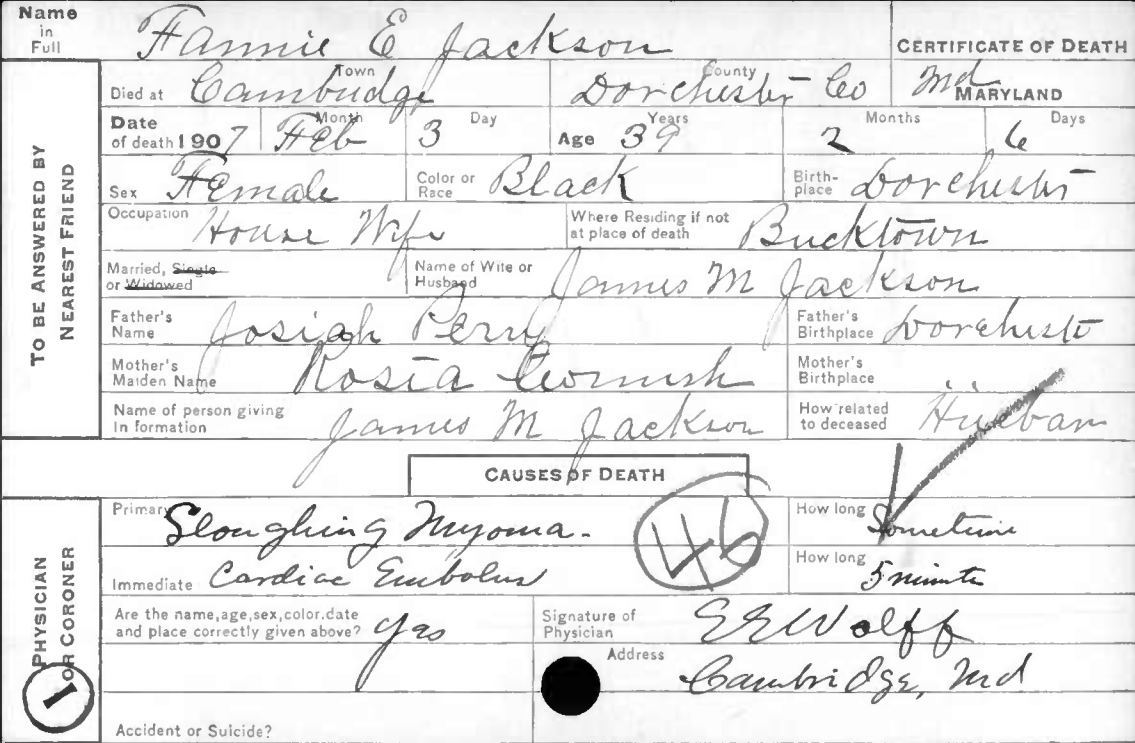 Name in Full Fannie E Jackson CERTIFICATE OF DEATH
TO BE ANSWERED BY NEAREST FRIEND
Died at Town Cambudge County Dorchester Co Md MARYLAND
Date of death 1907 Month Feb Day 3 Age Years 39 Months 2 Days 6
Sex Female Color or Race Black Birth-place Dorchester
Occupation House Wife Where Residing if not at place of death Bucktown
Married, Single or Widowed Name of Wife or Husband James M Jackson
Father's Name Josiah Perry Father's Birthplace Dorchester
Mother's Maiden Name Rosia Cornish Mother's Birthplace
Name of person giving In formation James M Jackson How related to deceased Husban
CAUSES OF DEATH
PHYSICIAN OR CORONER
Primary Sloughing Myoma. 46 How long Sometime
Immediate Cardiac Embolus How long 5 minute
Are the name,age,sex,color.date and place correctly given above? yes Signature of Physician E E Wolff
Address Cambridge, Md
1
Accident or Suicide?